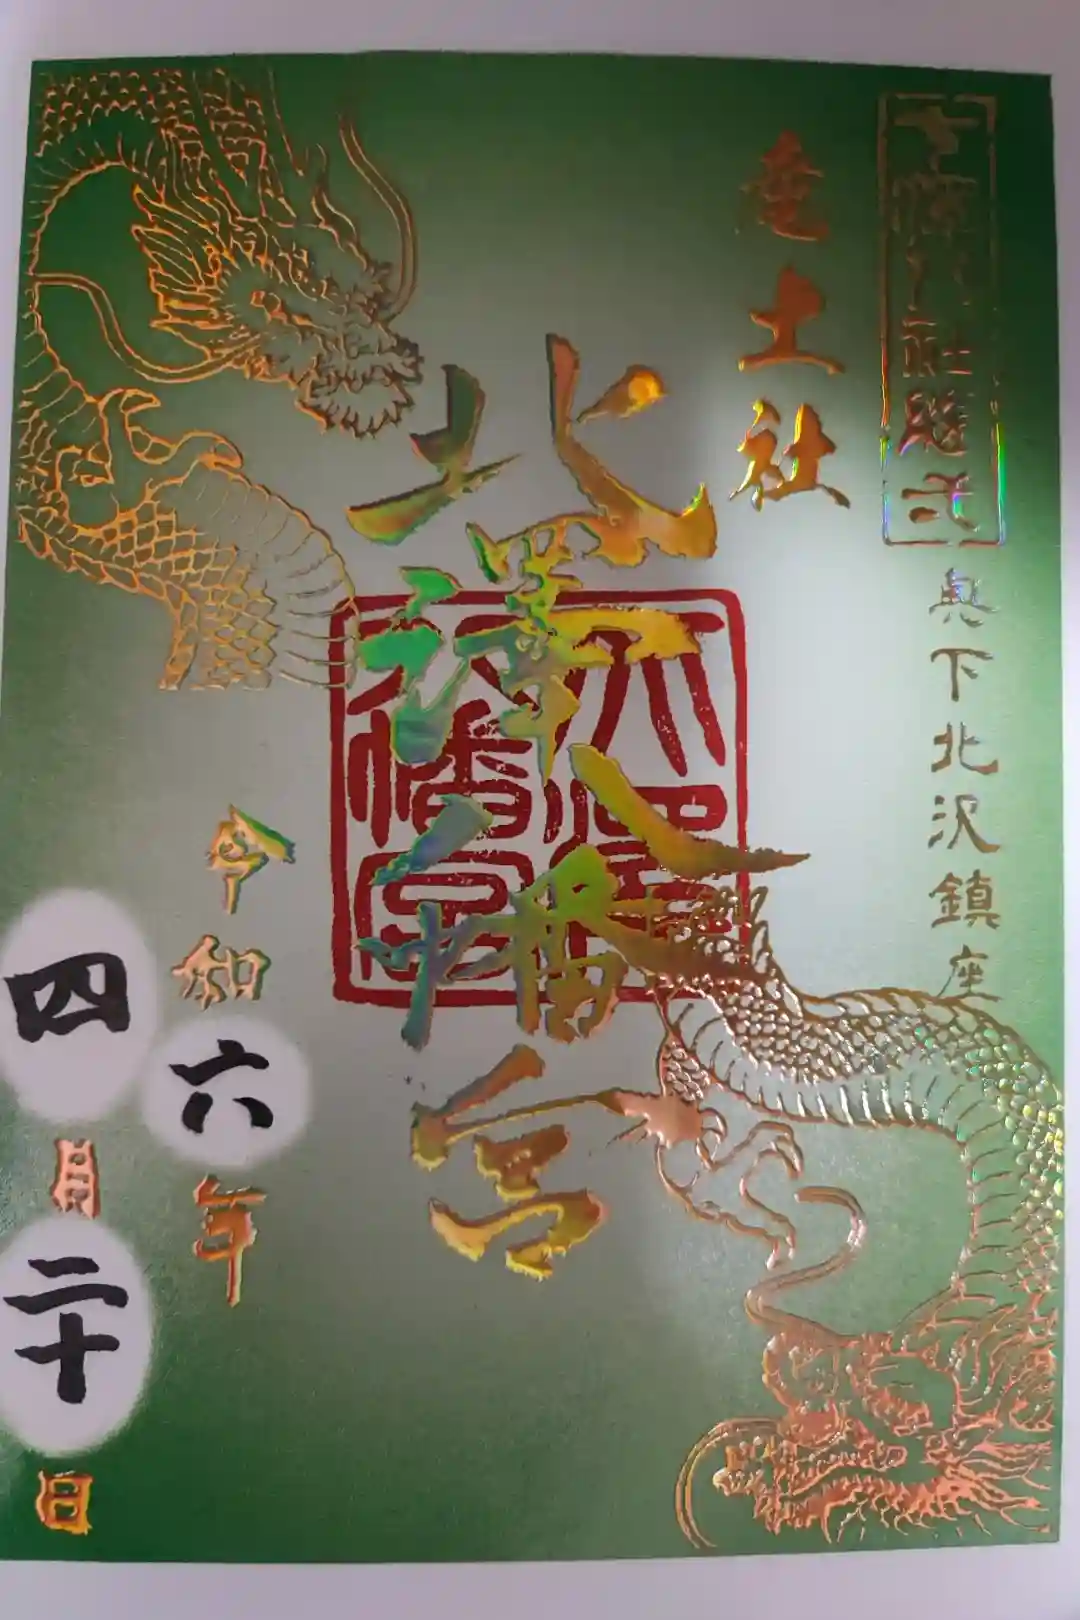 七澤八社隨一
奥下北沢鎮座
産土社
北澤八幡宮
北澤
八幡宮
令和六年
四月二十日